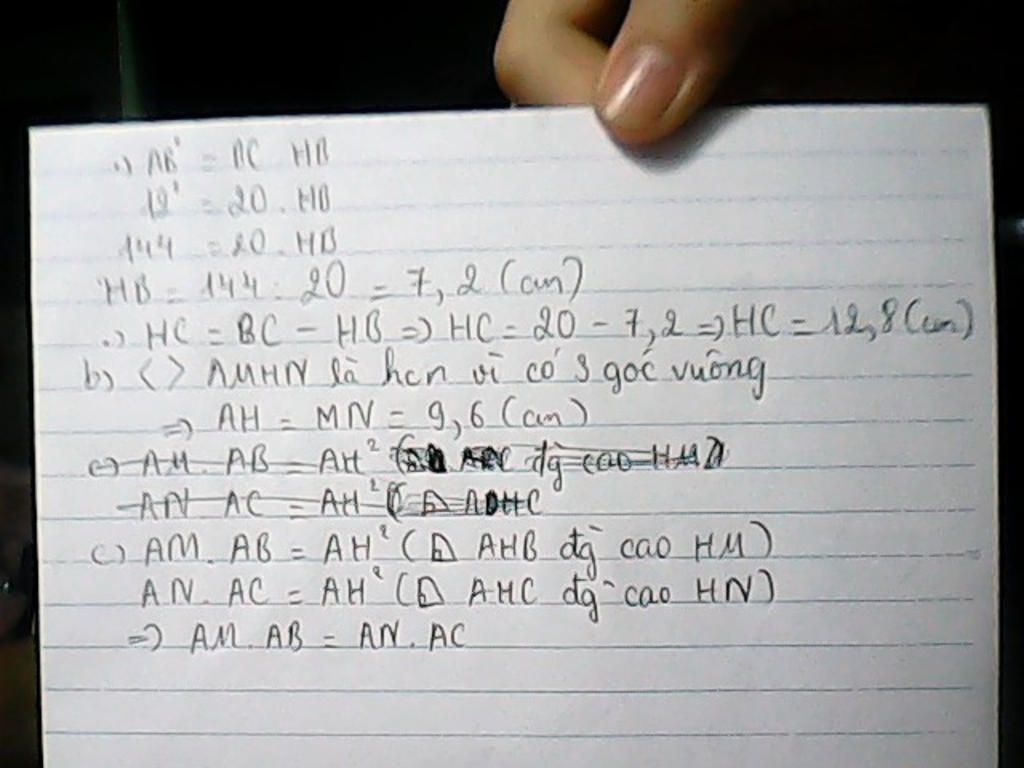 .) AB² = BC HB
12² = 20 . HB
144 = 20 . HB
HB = 144 : 20 = 7,2 (cm)
.) HC = BC - HB => HC = 20 - 7,2 => HC = 12,8 (cm)
b) <> AMHN là hcn vì có 3 góc vuông
=> AH = MN = 9,6 (cm)
c) AM. AB = AH² ( đg cao HM)
AN AC = AH² (
c) AM. AB = AH² (△ AHB đg cao HM)
AN. AC = AH² (△ AHC đg cao HN)
=) AM. AB = AN. AC